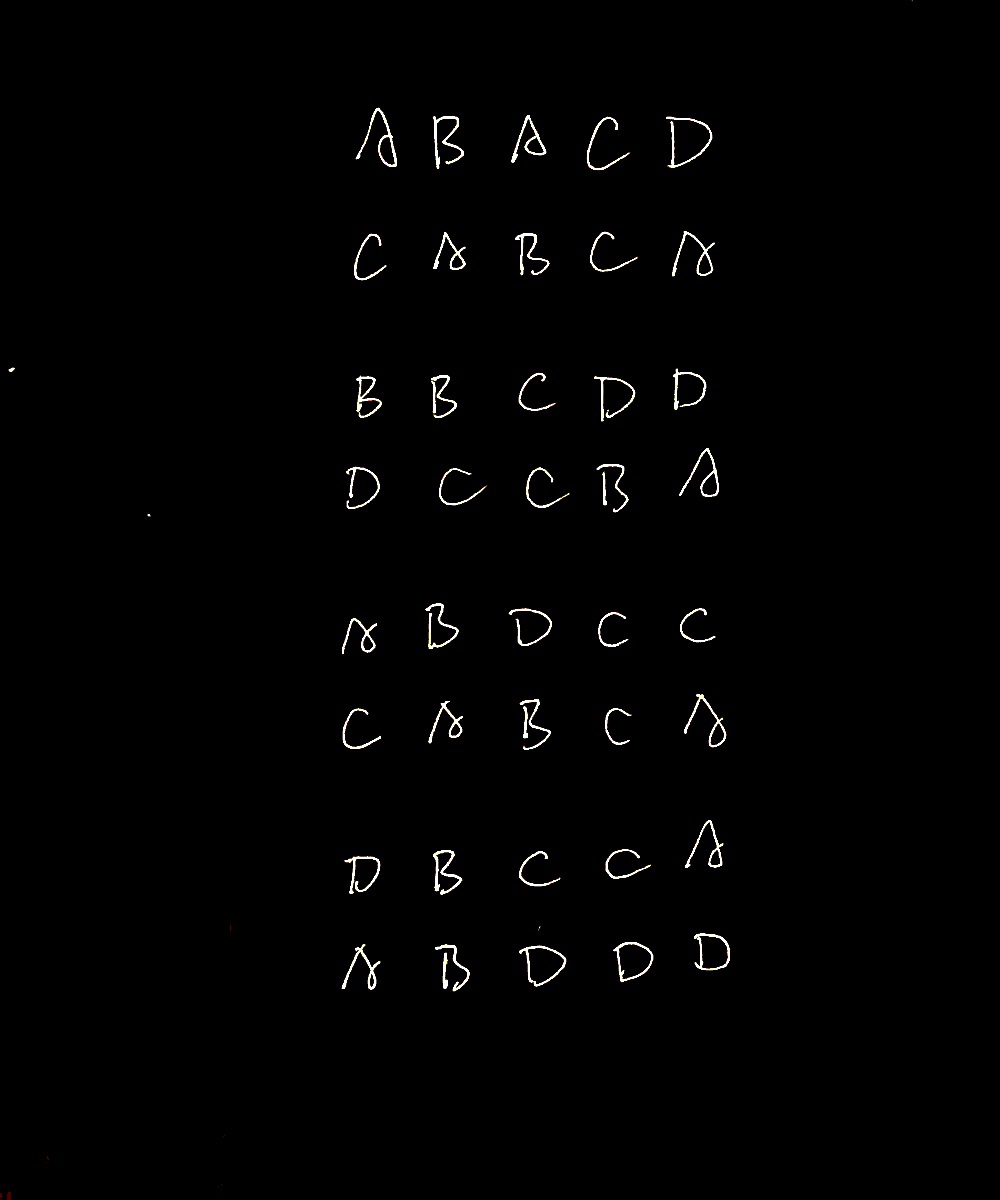 A B A C D
C A B C A
B B C D D
D C C B A
A B D C C
C A B C A
D B C C A
A B D D D